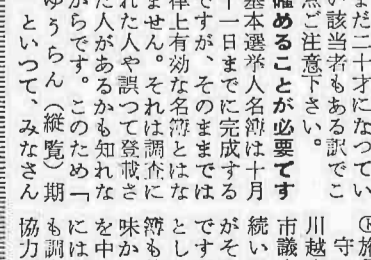 まだ二十才になつてい
い該当者もある訳でこ
点ご注意下さい。
確めることが必要です
基本選挙人名簿は十月
十一日までに完成する
ですが、そのままでは
律上有効な名簿とはな
ません。それは調査に
れた人や誤つて登載さ
た人があるかも知れな
からです。このため「
ゆうらん（縦覧）期
といつて、みなさん
Ⓡ旅
守
川越
市議
続い
がそ
です
とし
簿も
味か
を中
には
も調
協力